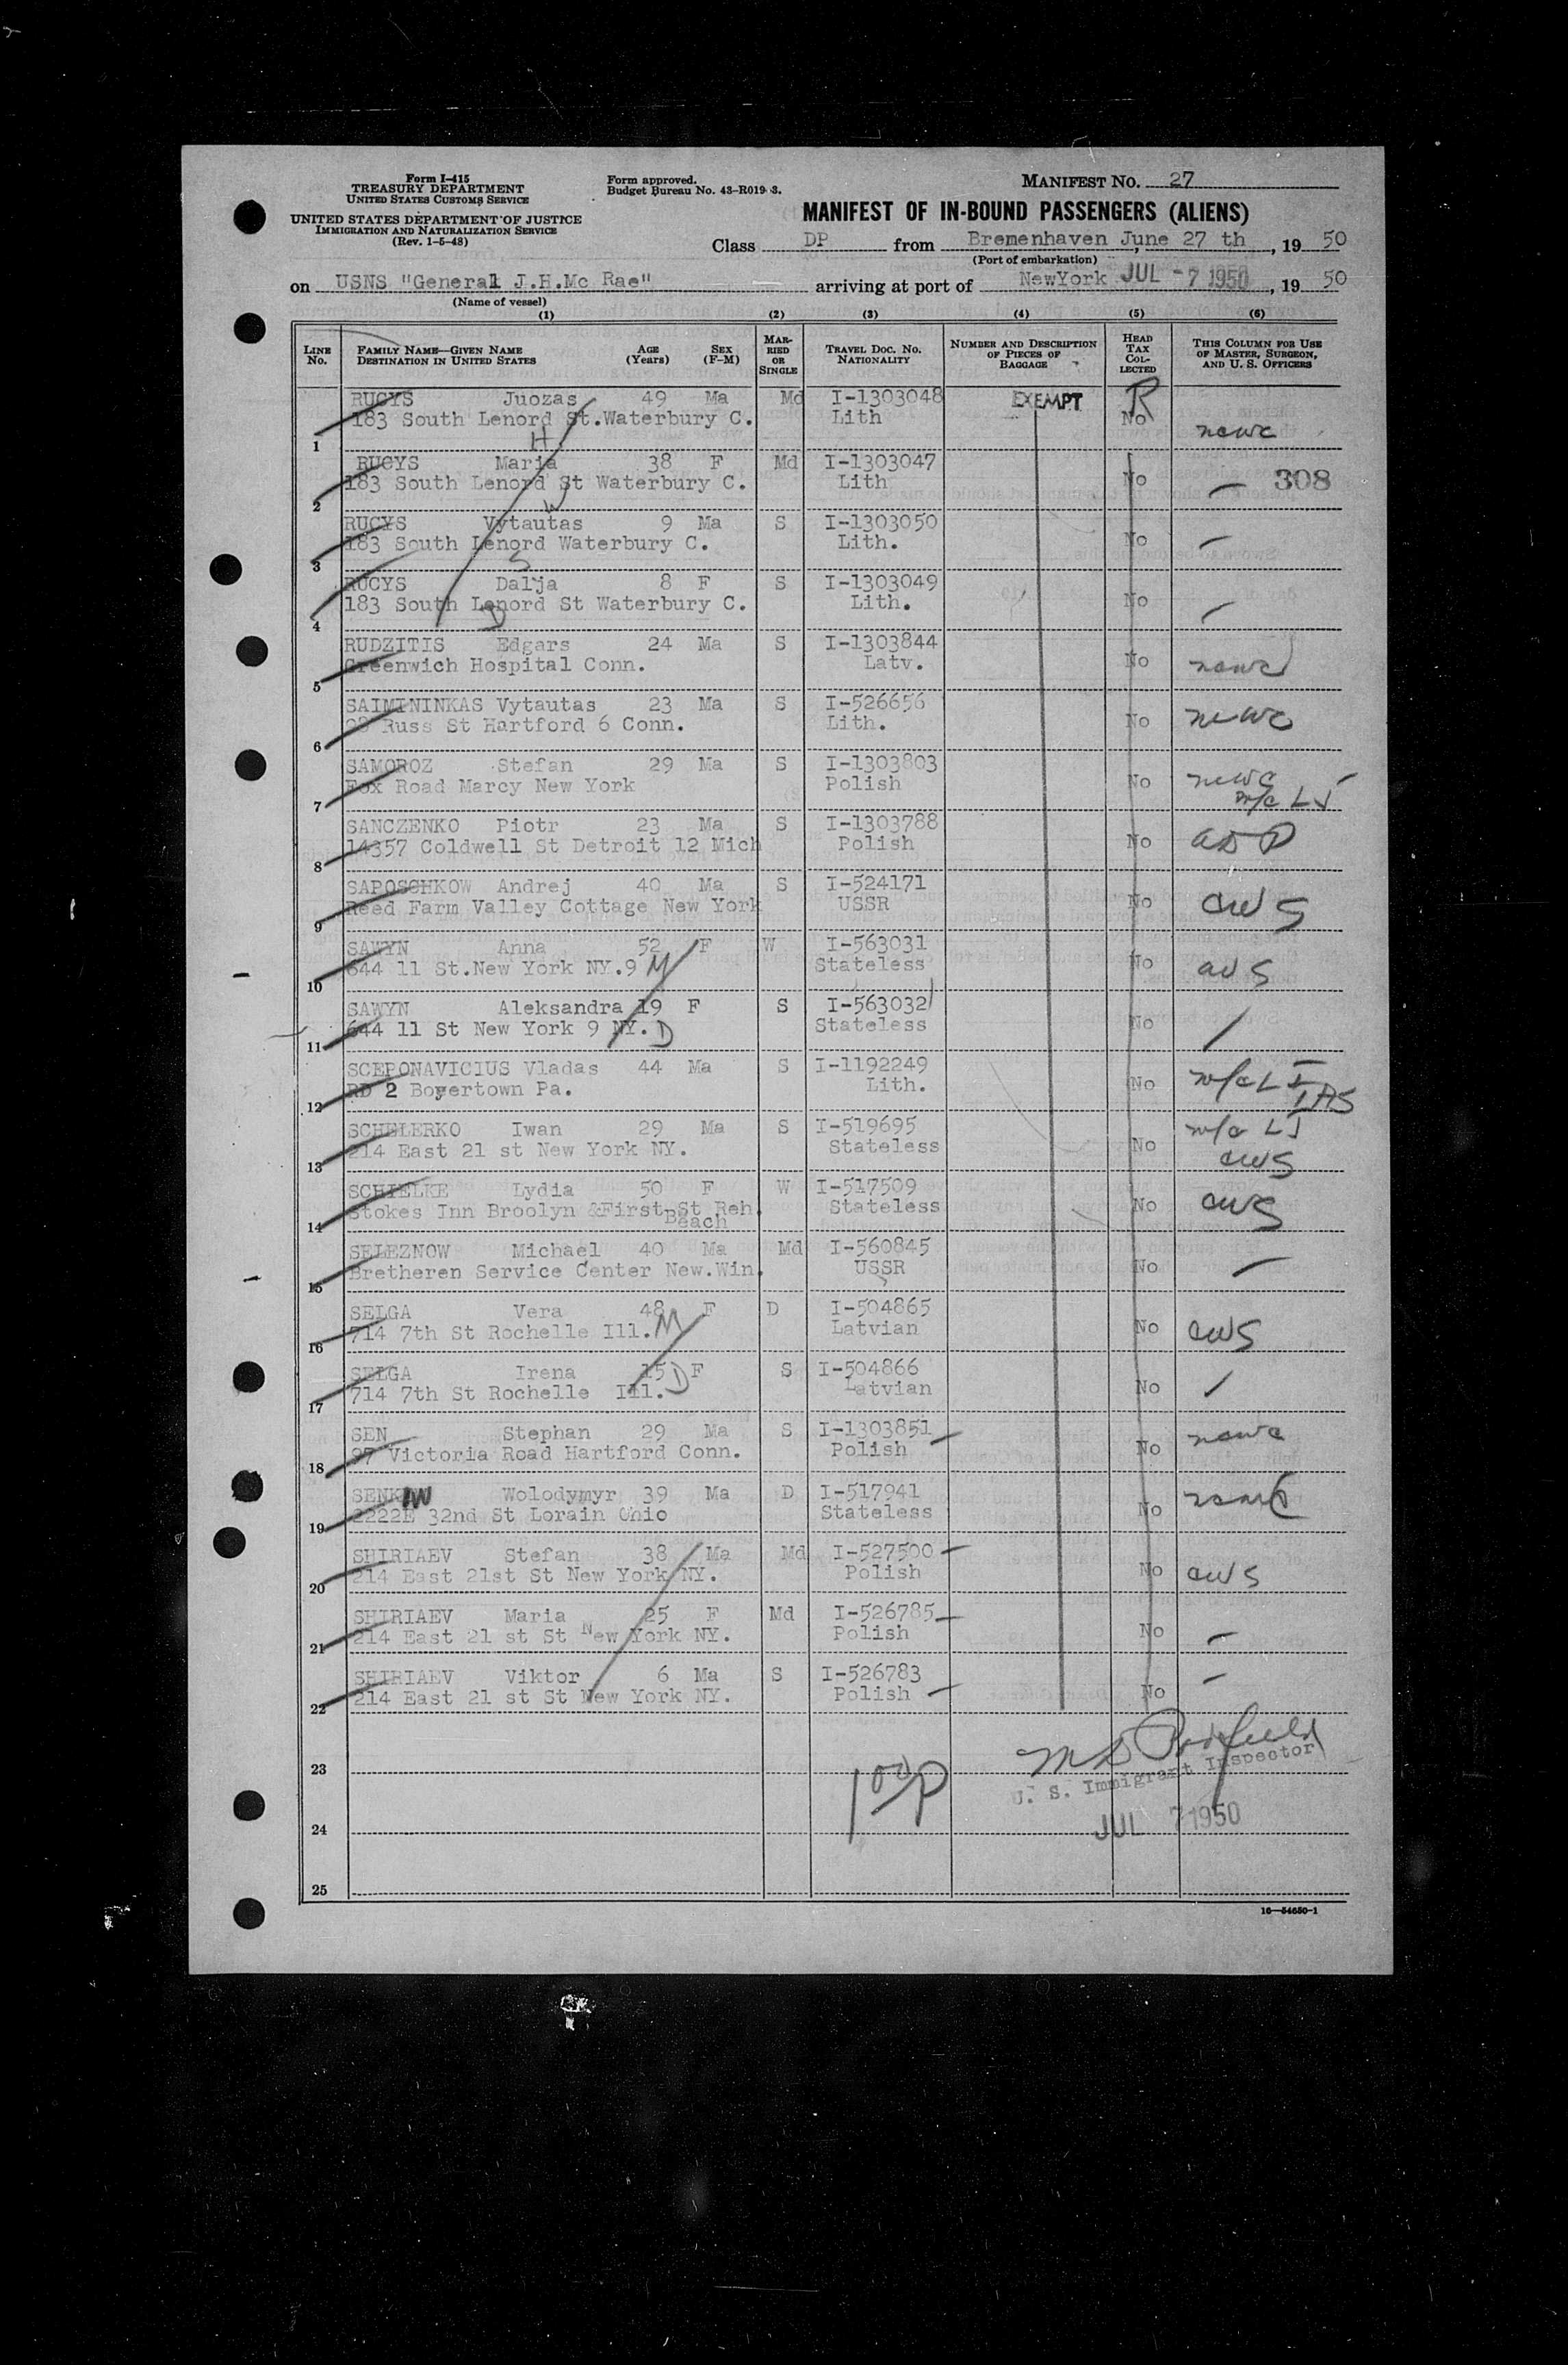 Form I-415
TREASURY DEPARTMENT
UNITED STATES CUSTOMS SERVICE
UNITED STATES DEPARTMENT OF JUSTICE
IMMIGRATION AND NATURALIZATION SERVICE
(Rev. 1-5-48)
Form approved.
Budget Bureau No. 43-R019 3.
MANIFEST NO. 27
MANIFEST OF IN-BOUND PASSENGERS (ALIENS)
Class DP from Bremenhaven June 27 th, 19 50
(Port of embarkation)
on USNS "General J.H.Mc Rae" arriving at port of NewYork JUL -7 1950, 19 50
(Name of vessel)
(1) (2) (3) (4) (5) (6)
LINE NO. FAMILY NAME—GIVEN NAME DESTINATION IN UNITED STATES AGE (Years) SEX (F-M) MARRIED OR SINGLE TRAVEL DOC. NO. NATIONALITY NUMBER AND DESCRIPTION OF PIECES OF BAGGAGE HEAD TAX COLLECTED THIS COLUMN FOR USE OF MASTER, SURGEON, AND U. S. OFFICERS
RUCYS Juozas 49 Ma Md I-1303048 EXEMPT R
183 South Lenord St.Waterbury C. Lith No
1 H ncwc
RUCYS Marja 38 F Md I-1303047
183 South Lenord St Waterbury C. Lith No 308
2 W
RUCYS Vytautas 9 Ma S I-1303050
183 South Lenord Waterbury C. Lith. No
3 S
RUCYS Dalja 8 F S I-1303049
183 South Lenord St Waterbury C. Lith. No
4 D
RUDZITIS Edgars 24 Ma S I-1303844
Greenwich Hospital Conn. Latv. No ncwc
5
SAIMININKAS Vytautas 23 Ma S I-526656
Russ St Hartford 6 Conn. Lith. No ncwc
6
SAMOROZ Stefan 29 Ma S I-1303803
Fox Road Marcy New York Polish No ncwc
7
SANCZENKO Piotr 23 Ma S I-1303788
14357 Coldwell St Detroit 12 Mich Polish No
8
SAPOSCHKOW Andrej 40 Ma S I-524171
Reed Farm Valley Cottage New York USSR No cws
9
SAWYN Anna 52 F W I-563031
644 11 St.New York NY.9 M Stateless No cws
10
SAWYN Aleksandra 19 F S I-563032
644 11 St New York 9 NY. D Stateless No
11
SCEPONAVICIUS Vladas 44 Ma S I-1192249
RD 2 Boyertown Pa. Lith. No
12
SCHELERKO Iwan 29 Ma S I-519695
214 East 21 st New York NY. Stateless No
13 cws
SCHIELKE Lydia 50 F W I-517509
Stokes Inn Broolyn &First St Reh. Beach Stateless No cws
14
SELEZNOW Michael 40 Ma Md I-560845
Bretheren Service Center New.Win. USSR No
15
SELGA Vera 48 F D I-504865
714 7th St Rochelle Ill. M Latvian No cws
16
SELGA Irena 15 D F S I-504866
714 7th St Rochelle Ill. Latvian No
17
SEN Stephan 29 Ma S I-1303851
97 Victoria Road Hartford Conn. Polish No ncwc
18
SENKIW Wolodymyr 39 Ma D I-517941
2222E 32nd St Lorain Ohio Stateless No
19
SHIRIAEV Stefan 38 Ma Md I-527500
214 East 21st St New York NY. Polish No cws
20
SHIRIAEV Maria 25 F Md I-526785
214 East 21 st St New York NY. Polish No
21
SHIRIAEV Viktor 6 Ma S I-526783
214 East 21 st St New York NY. Polish No
22
23
U. S. Immigrant Inspector
24
JUL 7 1950
25
16—54650-1